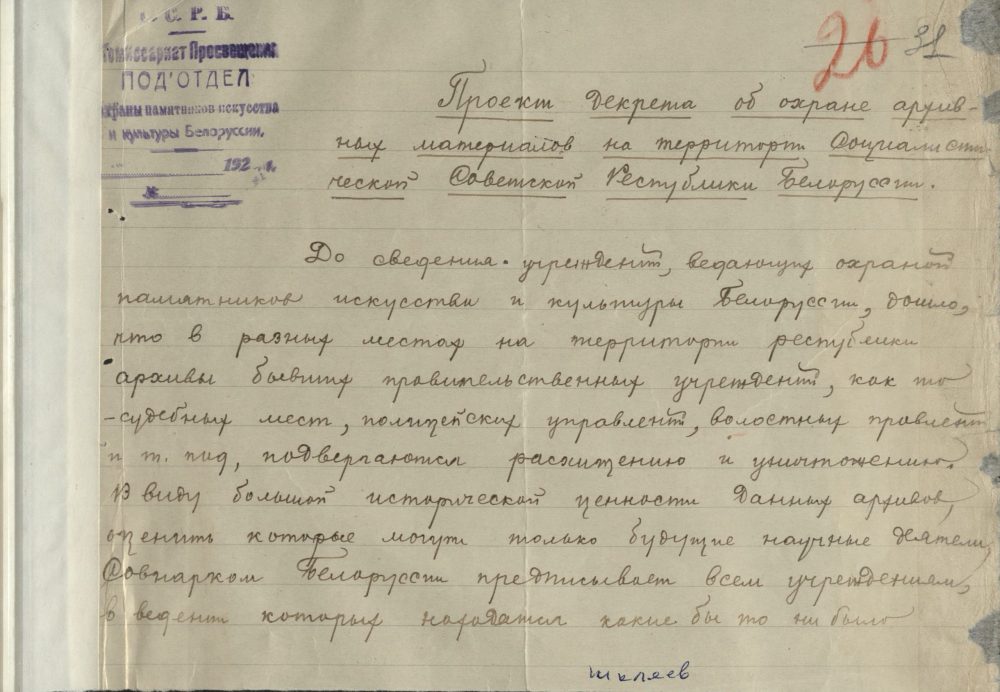 С. С. Р. Б.
26 31
Комиссариат Просвещения
ПОД'ОТДЕЛ
охраны памятников искусства
и культуры Белоруссии.
192 г.
№
Проект Декрета об охране архив-
ных материалов на территории Социалисти-
ческой Советской Республики Белоруссии.
До сведения учреждений, ведающих охраной
памятников искусства и культуры Белоруссии, дошло,
что в разных местах на территории республики
архивы бывших правительственных учреждений, как то
-судебных мест, полицейских управлений, волостных правлений
и т. под, подвергаются расхищению и уничтожению.
В виду большой исторической ценности данных архивов,
оценить которые могут только будущие научные деятели,
Совнарком Белоруссии предписывает всем учреждениям,
в ведении которых находятся какие бы то ни было
шкляев